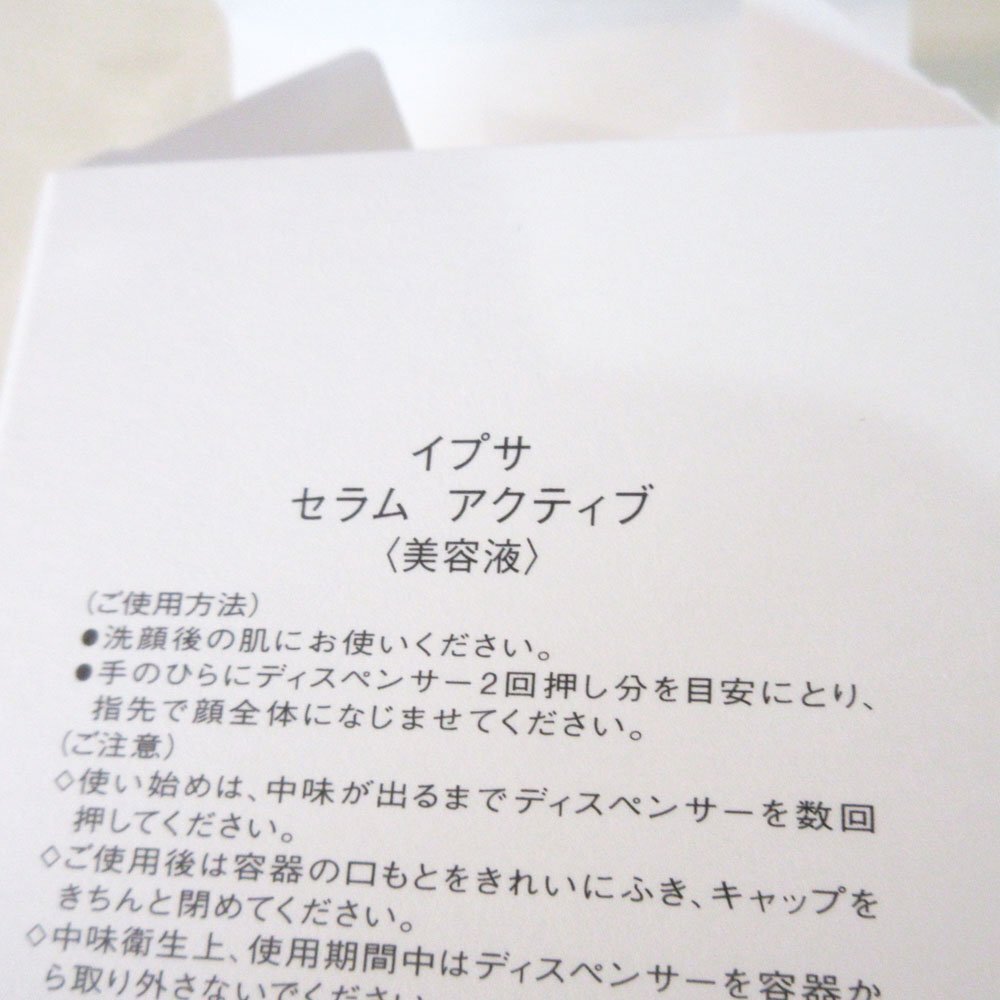 イプサ
セラム アクティブ
〈美容液〉
(ご使用方法)
●洗顔後の肌にお使いください。
●手のひらにディスペンサー2回押し分を目安にとり、
指先で顔全体になじませてください。
(ご注意)
◇使い始めは、中味が出るまでディスペンサーを数回
押してください。
◇ご使用後は容器の口もとをきれいにふき、キャップを
きちんと閉めてください。
◇中味衛生上、使用期間中はディスペンサーを容器か
ら取り外さないでください。